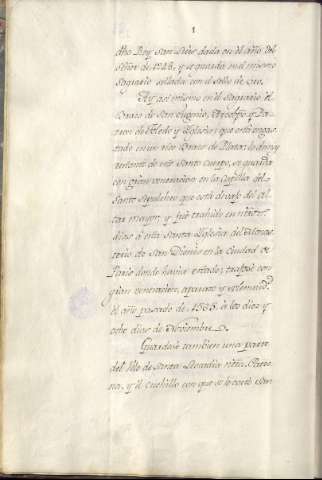 1
dho Rey San Luis dada en el año del
Señor de 1248, y se guarda en el mismo
Sagrario sellada con el sello de oro.
Ay asi mismo en el Sagrario el
Brazo de San Eugenio, Arzobpo y Pa-
tron de Toledo y Iglesia: que está engas-
tado en un rico Brazo de Plata: lo demas
restante de este Santo Cuerpo, se guarda
con gran veneracion en la Capilla del
Santo Sepulchro que está debajo del al-
tar mayor, y fué trahido en nuestros
dias á esta Santa Iglesia del Monas-
terio de San Dionis en la Ciudad de
Paris donde havia estado; trajose con
gran veneracion, aparato y solemnid.
el año pasado de 1565. á los diez y
ocho dias de Noviembre.
Guardase tambien una parte
del Velo de Santa Leocadia nra. Patro-
na, y el Cuchillo con que se lo cortó San